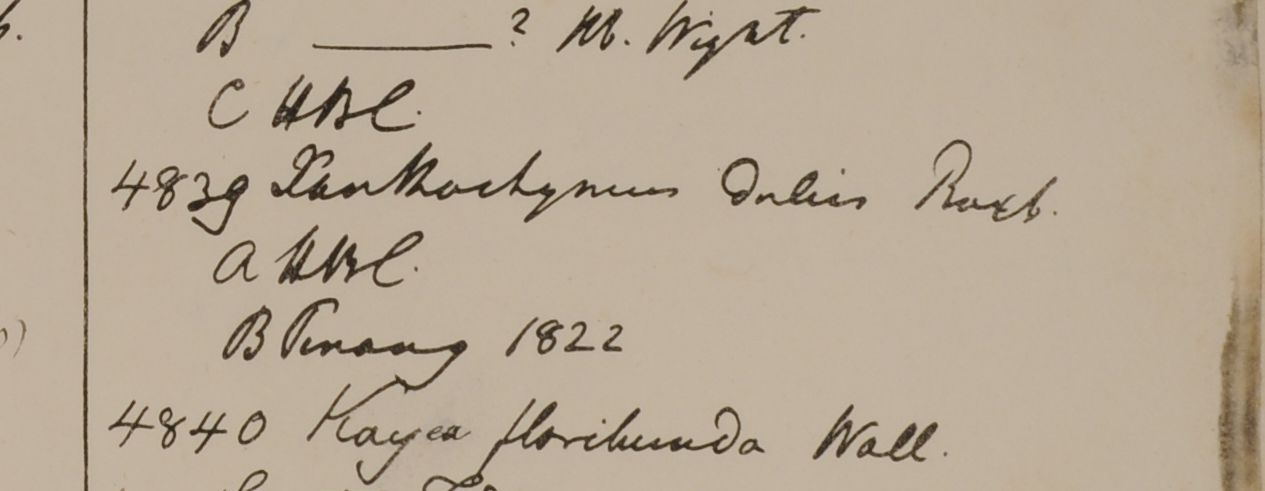 B ———? Hb. Wight.
C HBC.
4839 Xanthochymus dulcis Roxb.
A HBC.
B Penang 1822
4840 Kayea floribunda Wall.